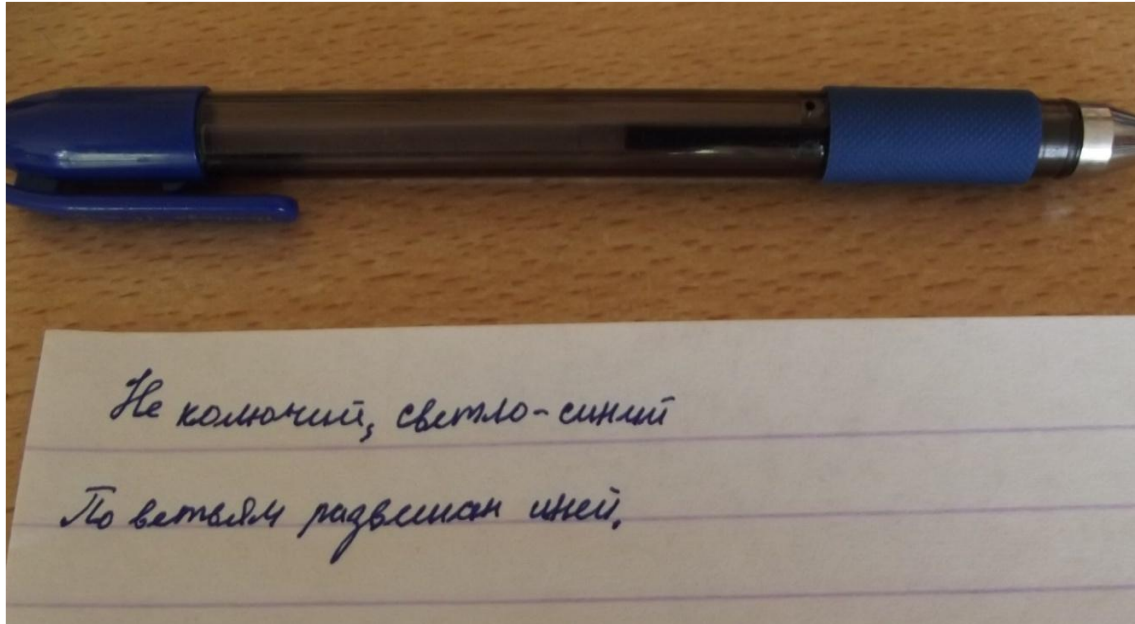 Не колючий, светло-синий
По ветвям развешан иней.